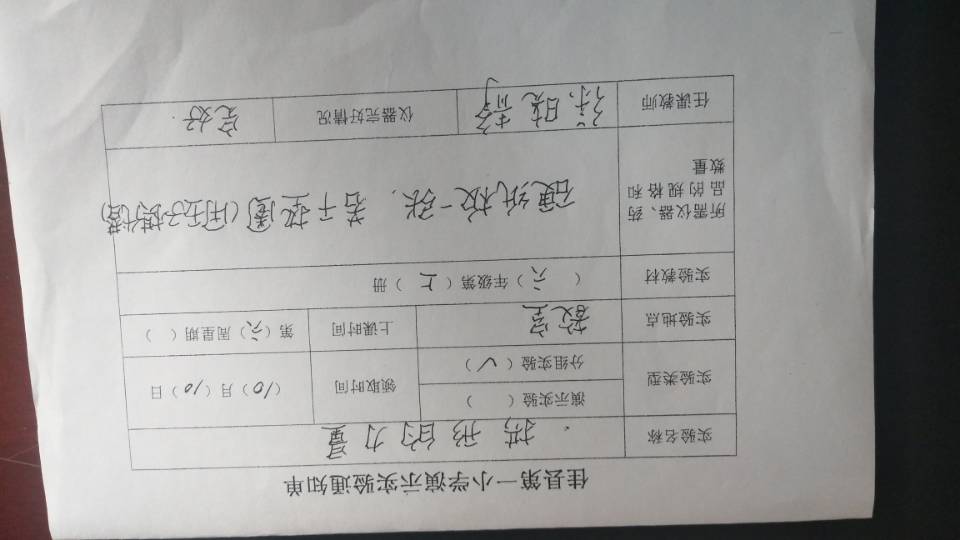 佳县第一小学演示实验通知单
实验名称 拱形的力量
实验类型 演示实验（ ） 领取时间 （10）月（10）日
分组实验（√）
实验地点 教室 上课时间 第（六）周星期（ ）
实验教材 （六）年级第（上）册
所需仪器、药 硬纸板一张, 若干
品的规格和
数量
任课教师 仪器完好情况 完好.